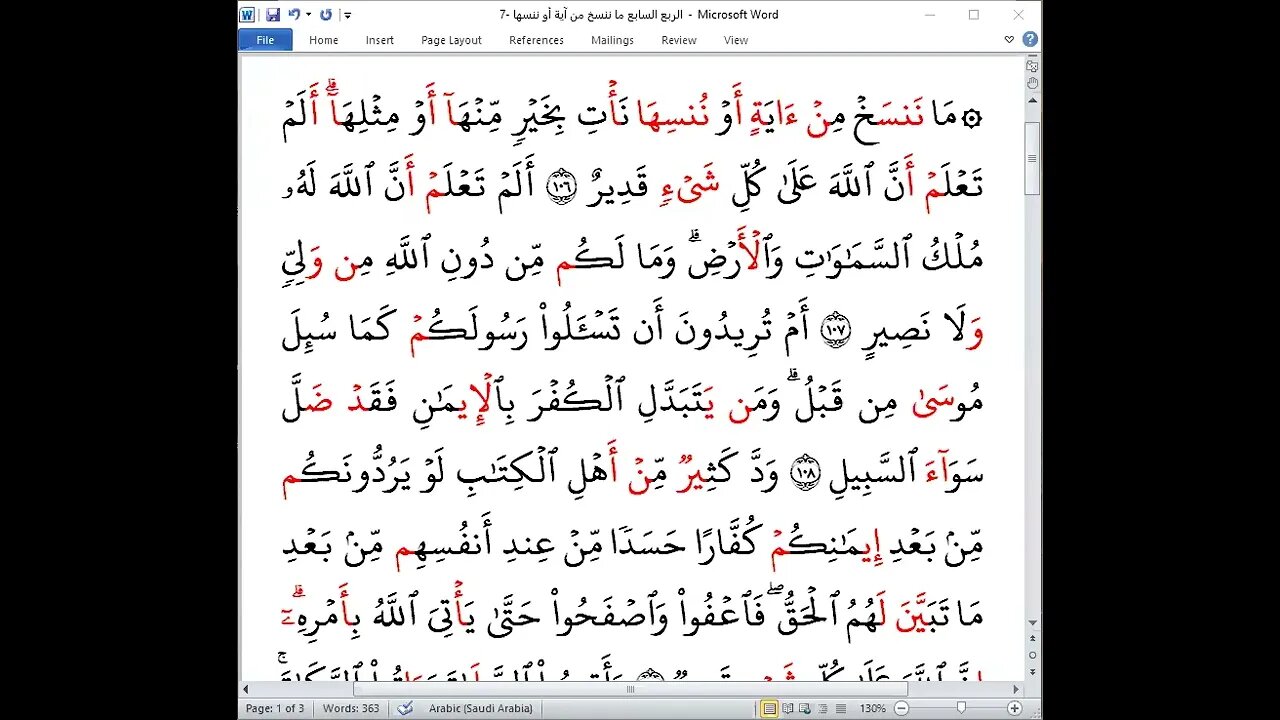 7- الربع السابع ما ننسخ من آية أو ننسها - Microsoft Word
File Home Insert Page Layout References Mailings Review View
۞ مَا نَنسَخْ مِنْ ءَايَةٍ أَوْ نُنسِهَا نَأْتِ بِخَيْرٍ مِّنْهَآ أَوْ مِثْلِهَآ ۗ أَلَمْ
تَعْلَمْ أَنَّ ٱللَّهَ عَلَىٰ كُلِّ شَىْءٍ قَدِيرٌ ١٠٦ أَلَمْ تَعْلَمْ أَنَّ ٱللَّهَ لَهُۥ
مُلْكُ ٱلسَّمَـٰوَٰتِ وَٱلْأَرْضِ ۗ وَمَا لَكُم مِّن دُونِ ٱللَّهِ مِن وَلِىٍّ
وَلَا نَصِيرٍ ١٠٧ أَمْ تُرِيدُونَ أَن تَسْـَٔلُوا۟ رَسُولَكُمْ كَمَا سُئِلَ
مُوسَىٰ مِن قَبْلُ ۗ وَمَن يَتَبَدَّلِ ٱلْكُفْرَ بِٱلْإِيمَـٰنِ فَقَدْ ضَلَّ
سَوَآءَ ٱلسَّبِيلِ ١٠٨ وَدَّ كَثِيرٌ مِّنْ أَهْلِ ٱلْكِتَـٰبِ لَوْ يَرُدُّونَكُم
مِّنۢ بَعْدِ إِيمَـٰنِكُمْ كُفَّارًا حَسَدًا مِّنْ عِندِ أَنفُسِهِم مِّنۢ بَعْدِ
مَا تَبَيَّنَ لَهُمُ ٱلْحَقُّ ۖ فَٱعْفُوا۟ وَٱصْفَحُوا۟ حَتَّىٰ يَأْتِىَ ٱللَّهُ بِأَمْرِهِۦٓ ۗ
Page: 1 of 3 Words: 363 Arabic (Saudi Arabia) 130%